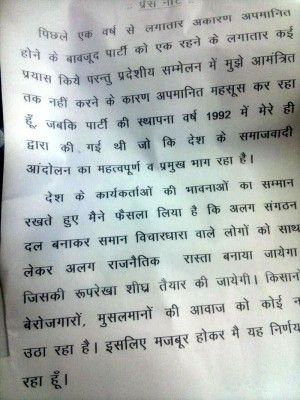 :: प्रेस नोट ::
पिछले एक वर्ष से लगातार अकारण अपमानित
होने के बावजूद पार्टी को एक रहने के लगातार कई
प्रयास किये परन्तु प्रदेशीय सम्मेलन में मुझे आमंत्रित
तक नहीं करने के कारण अपमानित महसूस कर रहा
हूँ, जबकि पार्टी की स्थापना वर्ष 1992 में मेरे ही
द्वारा की गई थी जो कि देश के समाजवादी
आंदोलन का महत्वपूर्ण व प्रमुख भाग रहा है।
देश के कार्यकर्ताओं की भावनाओं का सम्मान
रखते हुए मैने फैसला लिया है कि अलग संगठन
दल बनाकर समान विचारधारा वाले लोगों को साथ
लेकर अलग राजनैतिक रास्ता बनाया जायेगा
जिसकी रूपरेखा शीघ्र तैयार की जायेगी। किसानों
बेरोजगारों, मुसलमानों की आवाज को कोई न
उठा रहा है। इसलिए मजबूर होकर मै यह निर्णय
रहा हूँ।